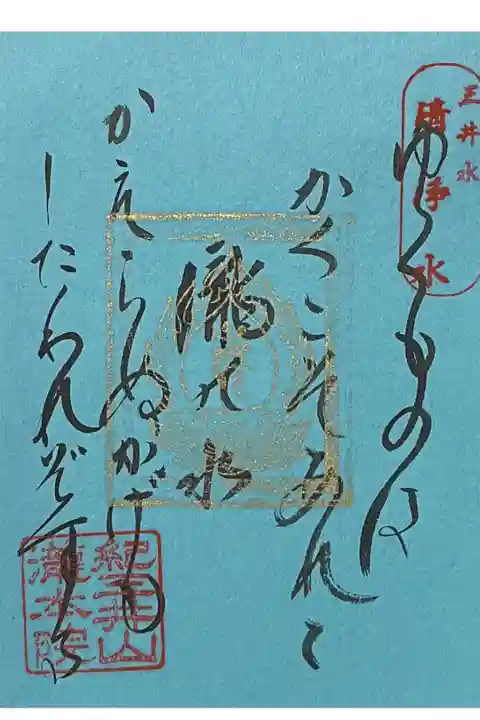 三井水
清浄水
ゆくものは
かくこそあれと
瀧の水
かえらぬかげも
したわれぞする
紀三井山
瀧本院